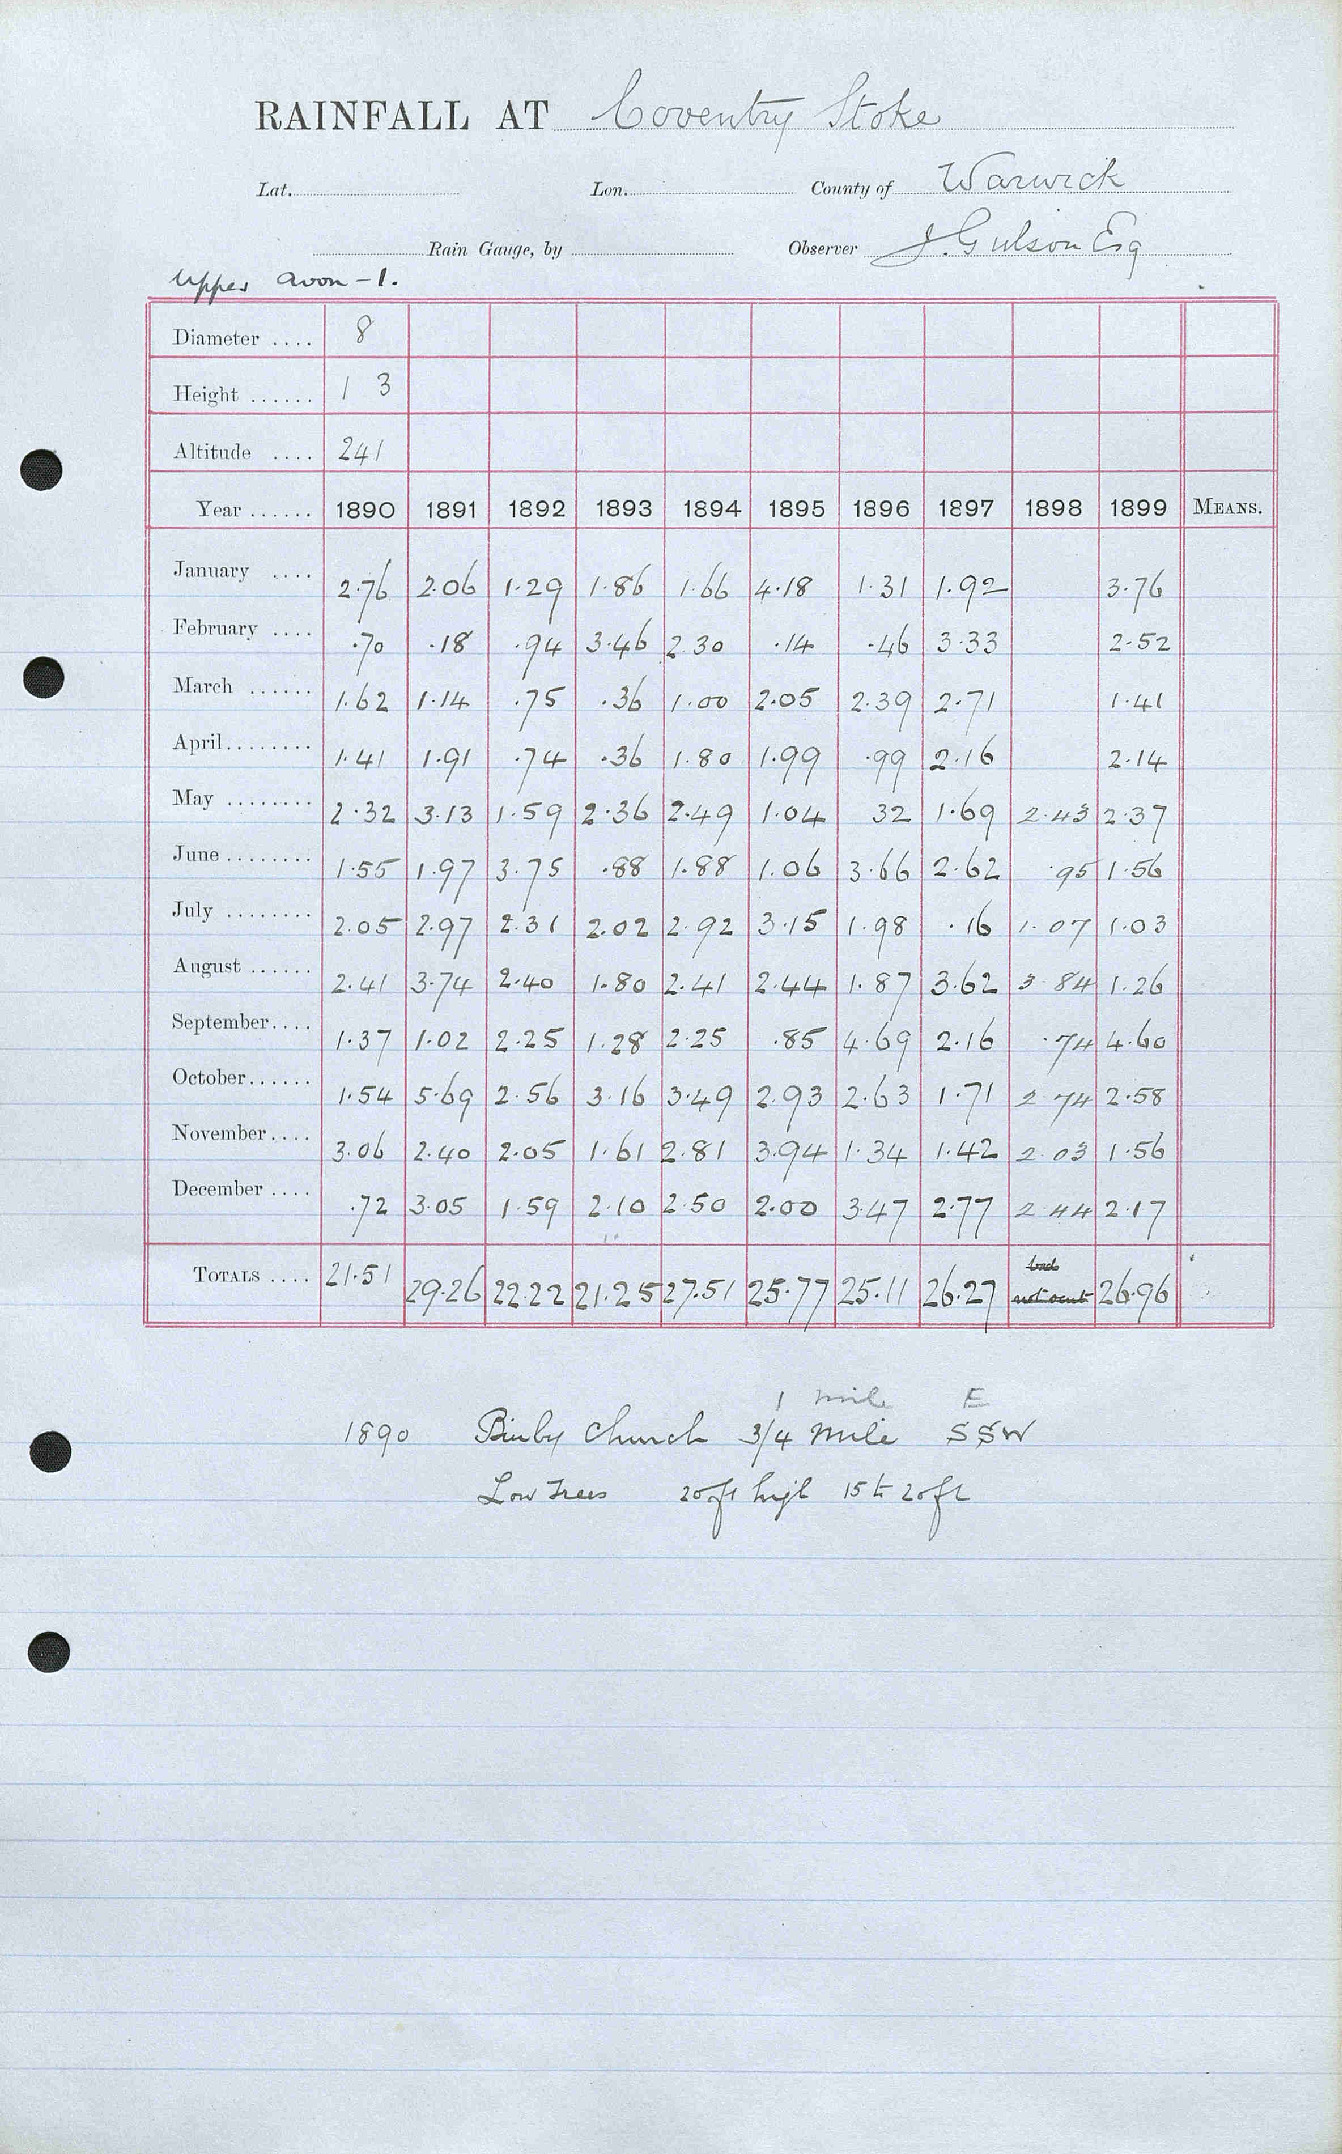 RAINFALL AT Coventry Stoke
Lat. Lon. County of Warwick
Rain Gauge, by Observer J. Gulson Esq
Upper Avon - 1.
Diameter .... 8
Height ...... 1 3
Altitude .... 241
Year ...... 1890 1891 1892 1893 1894 1895 1896 1897 1898 1899 MEANS.
January .... 2.76 2.06 1.29 1.86 1.66 4.18 1.31 1.92 3.76
February .... .70 .18 .94 3.46 2.30 .14 .46 3.33 2.52
March ...... 1.62 1.14 .75 .36 1.00 2.05 2.39 2.71 1.41
April........ 1.41 1.91 .74 .36 1.80 1.99 .99 2.16 2.14
May ........ 2.32 3.13 1.59 2.36 2.49 1.04 32 1.69 2.43 2.37
June ........ 1.55 1.97 3.75 .88 1.88 1.06 3.66 2.62 .95 1.56
July ........ 2.05 2.97 2.31 2.02 2.92 3.15 1.98 .16 1.07 1.03
August ...... 2.41 3.74 2.40 1.80 2.41 2.44 1.87 3.62 3 84 1.26
September.... 1.37 1.02 2.25 1.28 2.25 .85 4.69 2.16 .74 4.60
October...... 1.54 5.69 2.56 3.16 3.49 2.93 2.63 1.71 2 74 2.58
November.... 3.06 2.40 2.05 1.61 2.81 3.94 1.34 1.42 2.03 1.56
December .... .72 3.05 1.59 2.10 2.50 2.00 3.47 2.77 2 44 2.17
TOTALS .... 21.51 29.26 22.22 21.25 27.51 25.77 25.11 26.27 not sent 26.96
1 mile E
1890 Binley Church 3/4 mile SSW
Low Trees 20ft high 15 to 20ft